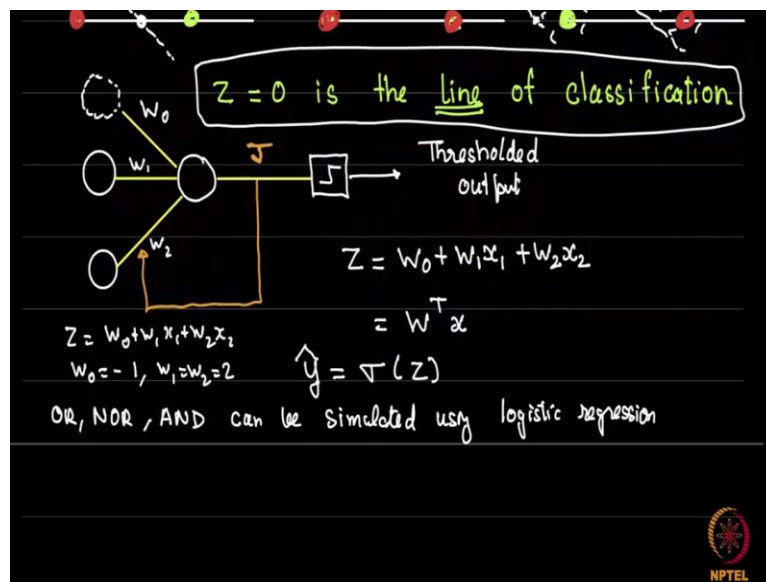 Z = 0 is the line of classification
W₀
W₁
W₂
J
Thresholded
output
Z = W₀ + W₁x₁ + W₂x₂
= Wᵀx
Z = W₀+W₁x₁+W₂x₂
W₀ = -1, W₁=W₂=2
ŷ = σ(Z)
OR, NOR, AND can be simulated usng logistic regression
NPTEL